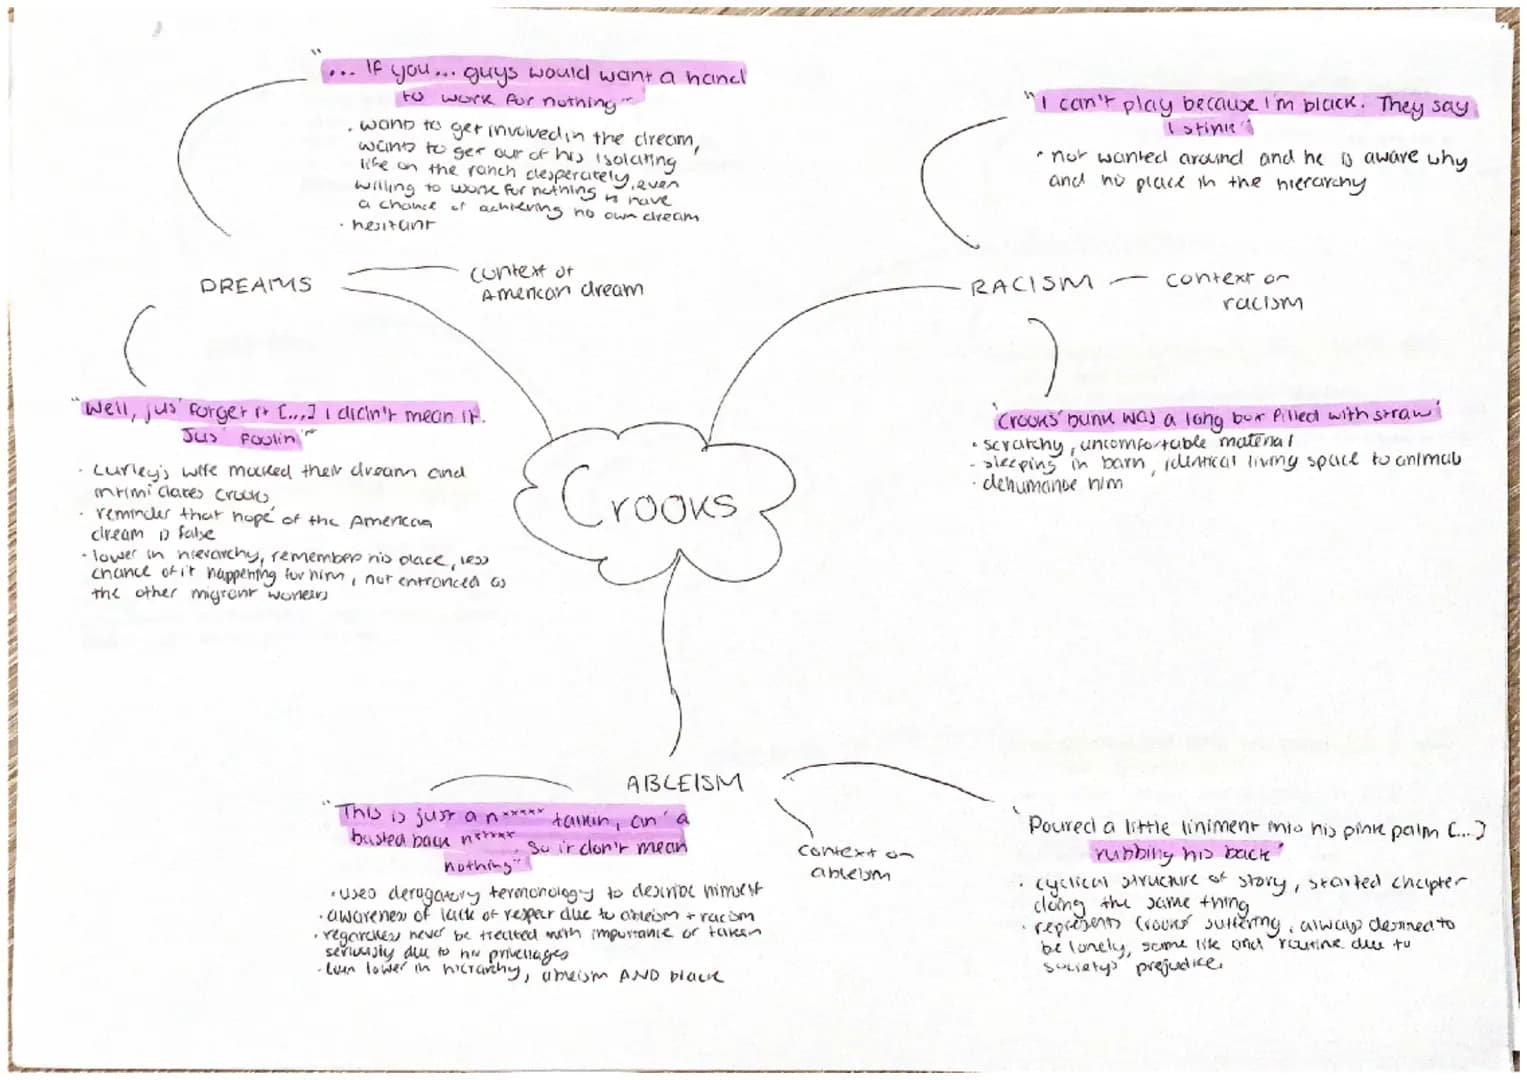 "... If you... guys would want a hand
to work for nothing"
. wants to get involved in the dream,
wants to get out of his isolating
life on the ranch desperately, even
willing to work for nothing to have
a chance of achieving his own dream
· hesitant
DREAMS
context of
American dream
"Well, jus' forget it [...] I didn't mean it.
Jus' foolin'"
· Curley's wife mocked their dream and
intimidates Crooks
· reminder that 'hope' of the American
dream is false
· lower in hierarchy, remembers his place, less
chance of it happening for him, not entranced as
the other migrant workers
"I can't play because I'm black. They say
I stink"
· not wanted around and he is aware why
and no place in the hierarchy
RACISM
context on
racism
"Crooks' bunk was a long box filled with straw"
· scratchy, uncomfortable material
· sleeping in barn, identical living space to animals
· dehumanise him
Crooks
ABLEISM
"This is just a n***** talkin', an' a
busted back n*****. So it don't mean
nothing"
· uses derogatory termonology to describe himself
· awareness of lack of respect due to ableism + racism
· regardless never be treated with importance or taken
seriously due to his
· Even lower in hierarchy, ableism AND black
context on
ableism
"Poured a little liniment into his pink palm [...]
rubbing his back"
· cyclical structure of story, started chapter
doing the same thing
· represents Crooks' suffering, always destined to
be lonely, same life and routine due to
societys' prejudice.